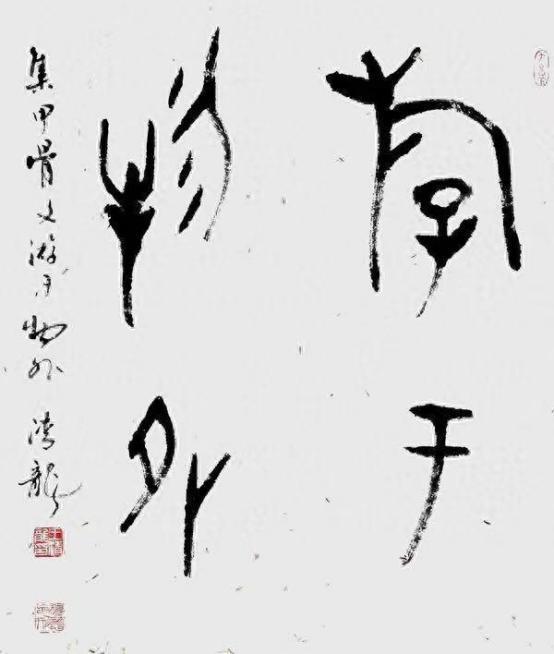 游于
物外
集甲骨文游于物外 清龙